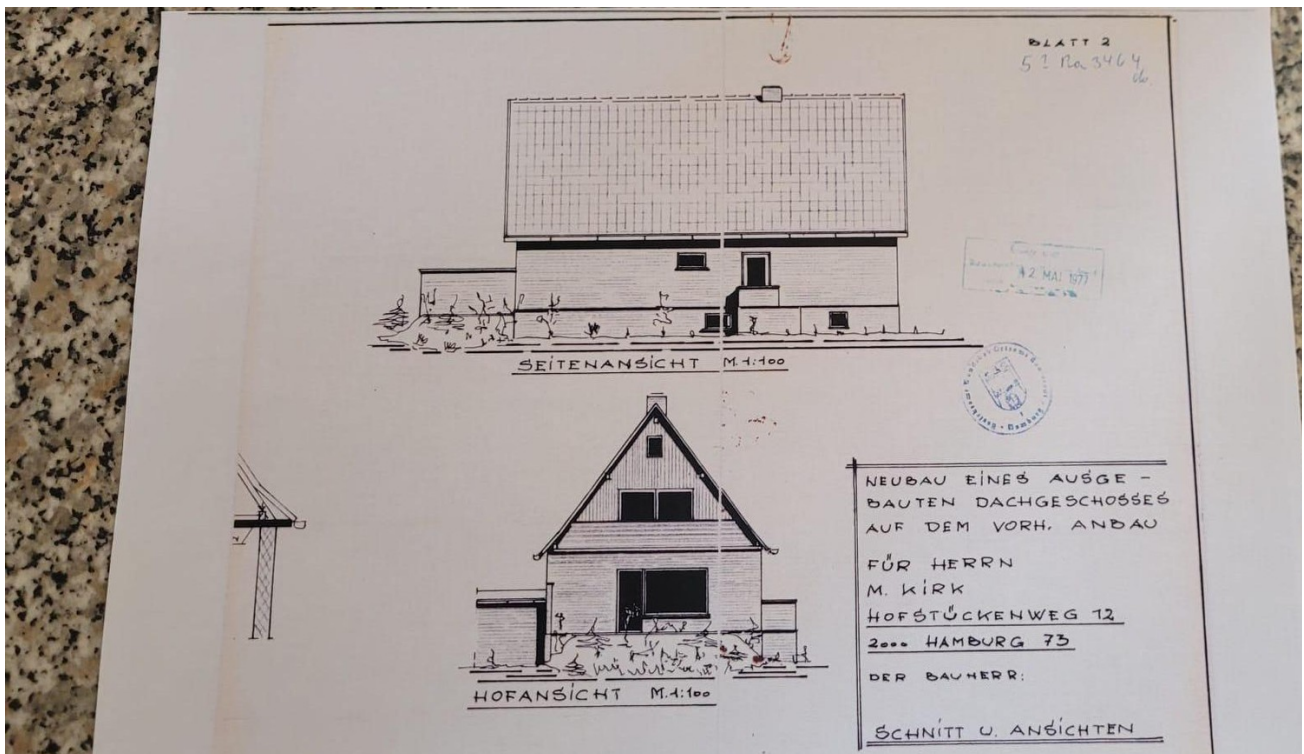 BLATT 2
SEITENANSICHT M.1:100
12. MAI 1977
HOFANSICHT M.1:100
NEUBAU EINES AUSGE-
BAUTEN DACHGESCHOSSES
AUF DEM VORH. ANBAU
FÜR HERRN
M. KIRK
HOFSTÜCKENWEG 12
2000 HAMBURG 73
DER BAUHERR:
SCHNITT U. ANSICHTEN